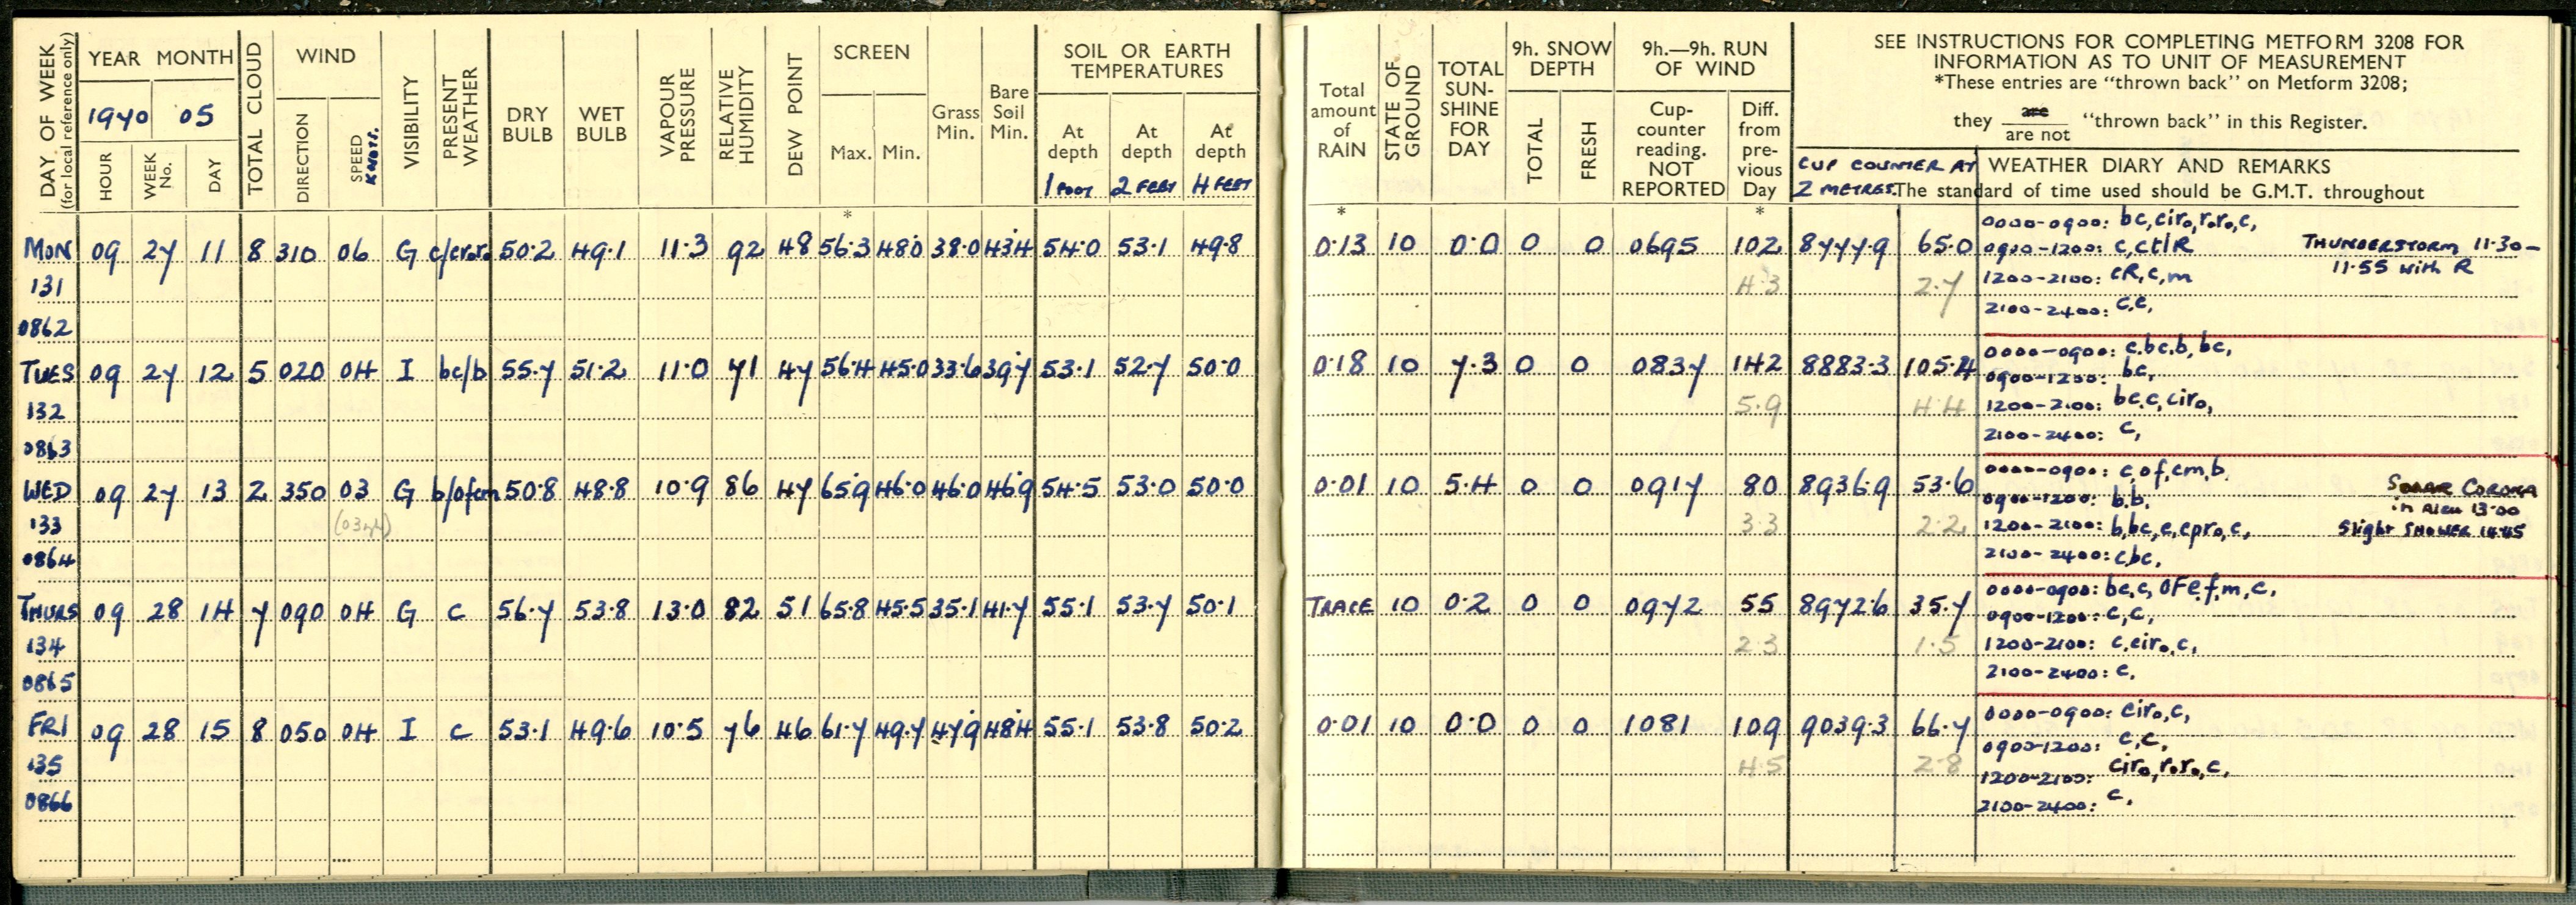 DAY OF WEEK
(for local reference only)
YEAR MONTH
1970 05
HOUR
WEEK No.
DAY
TOTAL CLOUD
WIND
DIRECTION
SPEED KNOTS.
VISIBILITY
PRESENT WEATHER
DRY BULB
WET BULB
VAPOUR PRESSURE
RELATIVE HUMIDITY
DEW POINT
SCREEN
Max. Min.
*
Grass Min.
Bare Soil Min.
SOIL OR EARTH
TEMPERATURES
At depth 1 FOOT
At depth 2 FEET
At depth 4 FEET
Total amount of RAIN
*
STATE OF GROUND
TOTAL SUN-SHINE FOR DAY
9h. SNOW DEPTH
TOTAL
FRESH
9h.—9h. RUN OF WIND
Cup-counter reading. NOT REPORTED
Diff. from pre-vious Day
*
SEE INSTRUCTIONS FOR COMPLETING METFORM 3208 FOR
INFORMATION AS TO UNIT OF MEASUREMENT
*These entries are "thrown back" on Metform 3208;
they are / are not "thrown back" in this Register.
CUP COUNTER AT
2 METRES.
WEATHER DIARY AND REMARKS
The standard of time used should be G.M.T. throughout
MON 09 27 11 8 310 06 G c/cr.r. 50.2 49.1 11.3 92 48 56.3 48.0 38.0 43.4 54.0 53.1 49.8 0.13 10 0.0 0 0 0695 102 8777.9 65.0
131 4.3 2.7
0862
0000-0900: bc,cir₀,r.r₀,c,
0900-1200: c,ctlR
1200-2100: cR,c,m
2100-2400: c.c,
THUNDERSTORM 11.30-
11.55 with R
TUES 09 27 12 5 020 04 I bc/b 55.7 51.2 11.0 71 47 56.4 45.0 33.6 39.7 53.1 52.7 50.0 0.18 10 7.3 0 0 0837 142 8883.3 105.4
132 5.9 4.4
0863
0000-0900: c.bc.b,bc,
0900-1200: bc,
1200-2100: bc.c,cir₀,
2100-2400: c,
WED 09 27 13 2 350 03 G b/ofcm 50.8 48.8 10.9 86 47 65.9 46.0 46.0 46.9 54.5 53.0 50.0 0.01 10 5.4 0 0 0917 80 8936.9 53.6
133 3.3 2.2
0864
0000-0900: c,of,cm,b.
0900-1200: b.b.
1200-2100: b,bc,c,cpr₀,c,
2100-2400: cbc,
SOLAR CORONA
in Alcu 13.00
Slight SHOWER 14.45
THURS 09 28 14 7 090 04 G c 56.7 53.8 13.0 82 51 65.8 45.5 35.1 41.7 55.1 53.7 50.1 TRACE 10 0.2 0 0 0972 55 8972.6 35.7
134 2.3 1.5
0865
0000-0900: bc,c, OFe,f,m,c,
0900-1200: c,c,
1200-2100: c,cir₀,c,
2100-2400: c,
FRI 09 28 15 8 050 04 I c 53.1 49.6 10.5 76 46 61.7 49.7 47.9 48.4 55.1 53.8 50.2 0.01 10 0.0 0 0 1081 109 9039.3 66.7
135 4.5 2.8
0866
0000-0900: cir₀,c,
0900-1200: c,c,
1200-2100: cir₀,r.r₀,c,
2100-2400: c,